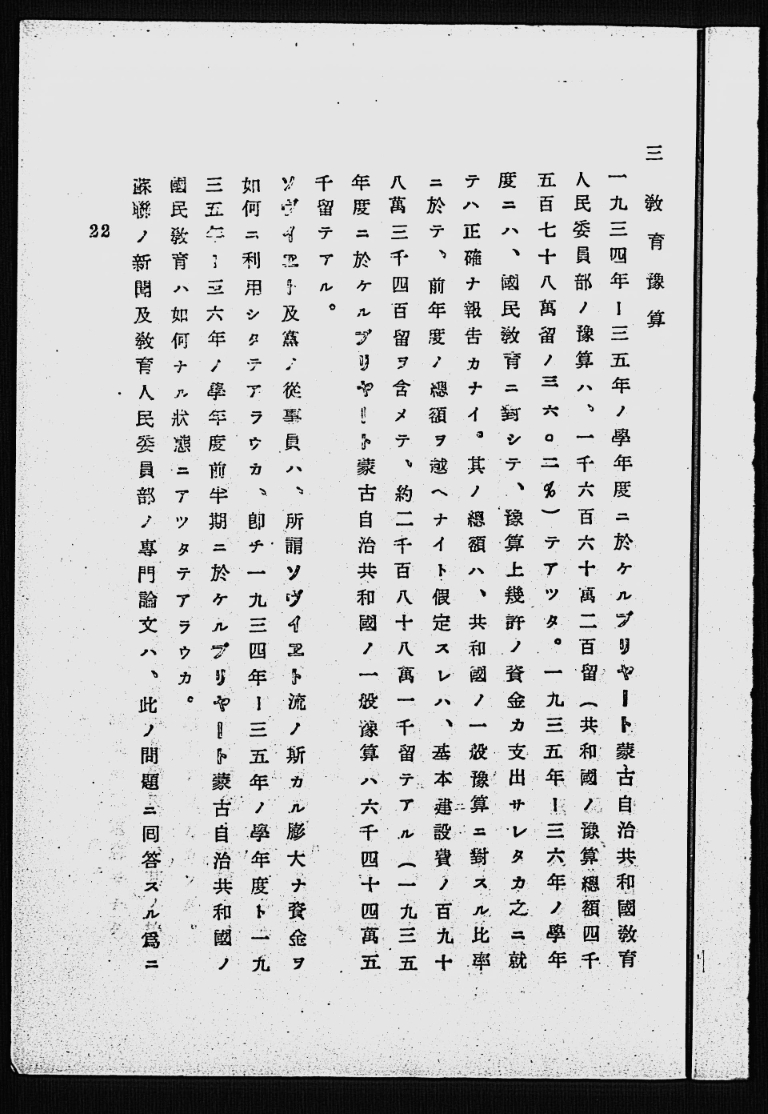 三 教育豫算
一九三四年ー三五年ノ學年度ニ於ケルブリヤート蒙古自治共和國敎育
人民委員部ノ豫算ハ、一千六百六十萬二百留（共和國ノ豫算總額四千
五百七十八萬留ノ三六。二％）テアツタ。一九三五年ー三六年ノ學年
度ニハ、國民敎育ニ對シテ、豫算上幾許ノ資金カ支出サレタカ之ニ就
テハ正確ナ報吿カナイ。其ノ總額ハ、共和國ノ一般豫算ニ對スル比率
ニ於テ、前年度ノ總額ヲ越ヘナイト假定スレハ、基本建設費ノ百九十
八萬三千四百留ヲ含メテ、約二千百八十八萬一千留テアル（一九三五
年度ニ於ケルブリヤート蒙古自治共和國ノ一般豫算ハ六千四十四萬五
千留テアル。
ソヴイエト及黨ノ從事員ハ、所謂ソヴイエト流ノ斯カル膨大ナ資金ヲ
如何ニ利用シタテアラウカ、卽チ一九三四年ー三五年ノ學年度ト一九
三五年ー三六年ノ學年度前半期ニ於ケルブリヤート蒙古自治共和國ノ
國民敎育ハ如何ナル狀態ニアツタテアラウカ。
蘇聯ノ新聞及敎育人民委員部ノ專門論文ハ、此ノ問題ニ囘答スル爲ニ
22